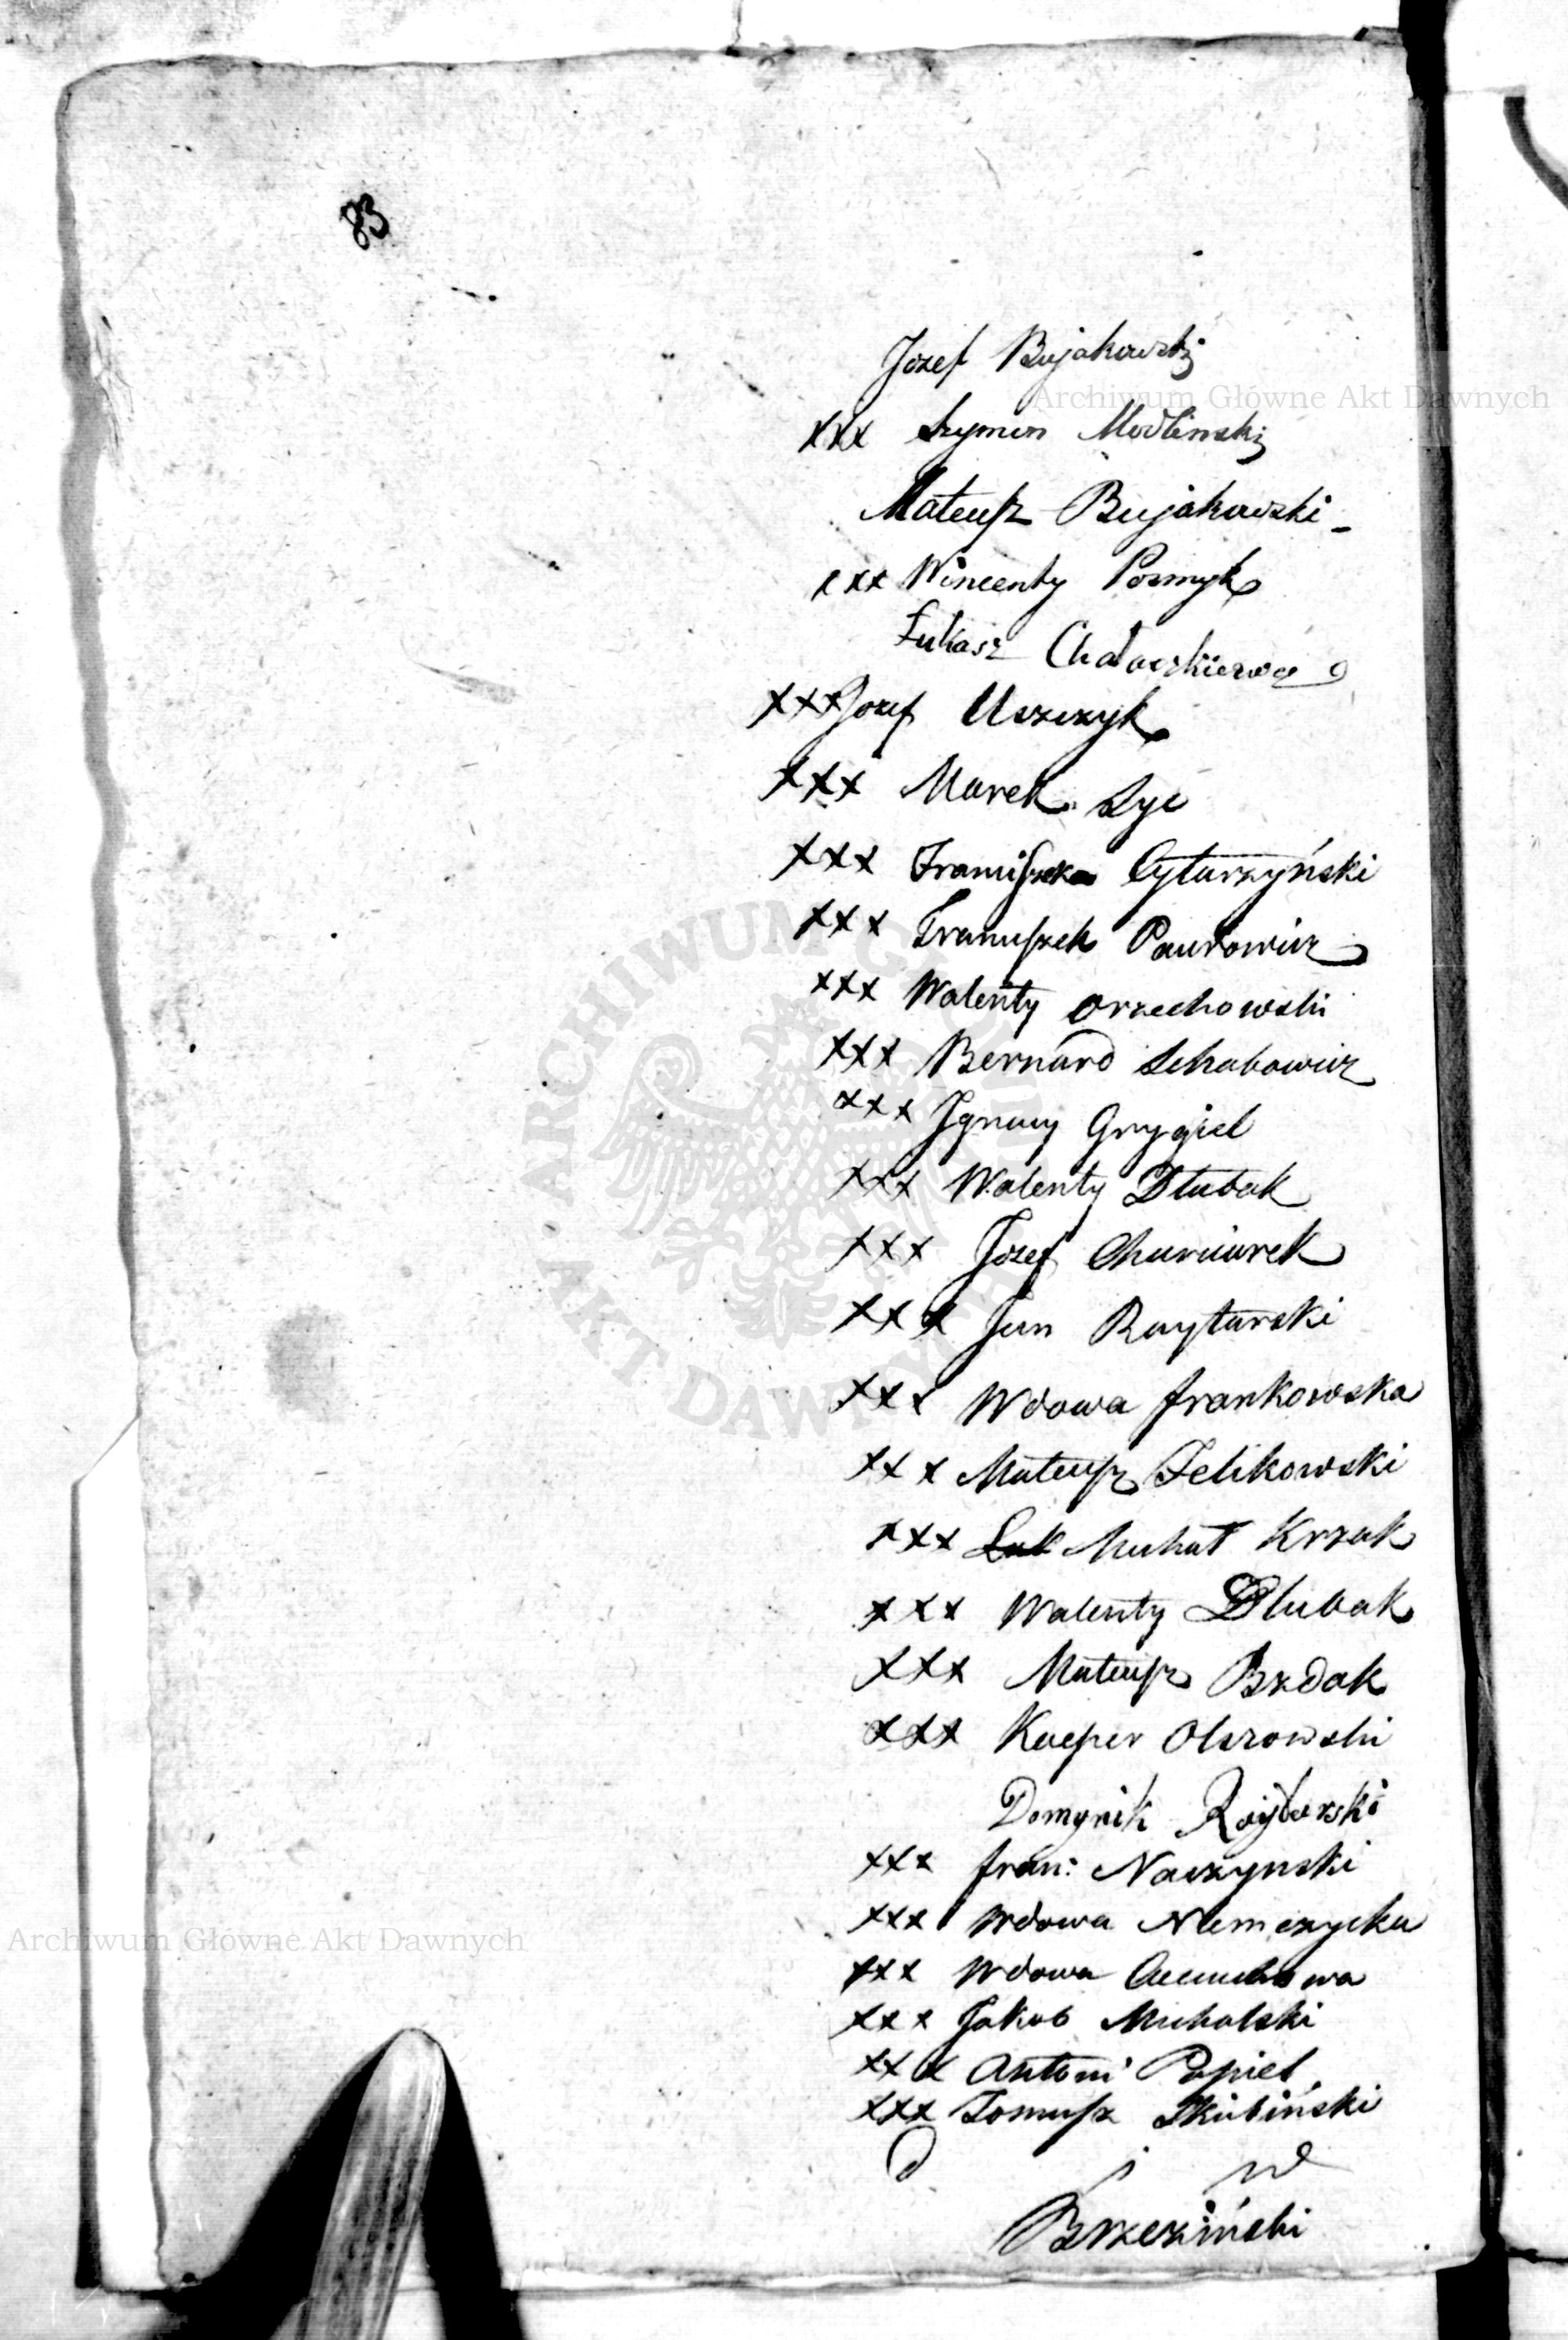 83
Jozef Bujakowski
xxx Szymon Modlinski
Mateusz Bujakowski
xxx Wincenty Posmyk
Łukasz
xxx Jozef Uszczyk
xxx Marek Syc
xxx Franciszek Cytarzyński
xxx Franciszek Pawłowicz
xxx Walenty Orzechowski
xxx Bernard Schabowicz
xxx Jgnacy Grygiel
xxx Walenty Dłubak
xxx Jozef
xxx Jan Raytarski
xxx Wdowa Frankowska
xxx Mateusz Felikowski
xxx Michał Krzak
xxx Walenty Dlubak
xxx Mateusz Bzdak
xxx Kacper Olszowski
Domynik Raytarski
xxx Fran: Naczynski
xxx Wdowa Niemczycka
xxx Wdowa
xxx Jakob Michalski
xxx Antoni Popiel
xxx Tomasz Skubiński
Brzeziński
Archiwum Główne Akt Dawnych
ARCHIWUM GŁÓWNE AKT DAWNYCH
Archiwum Główne Akt Dawnych